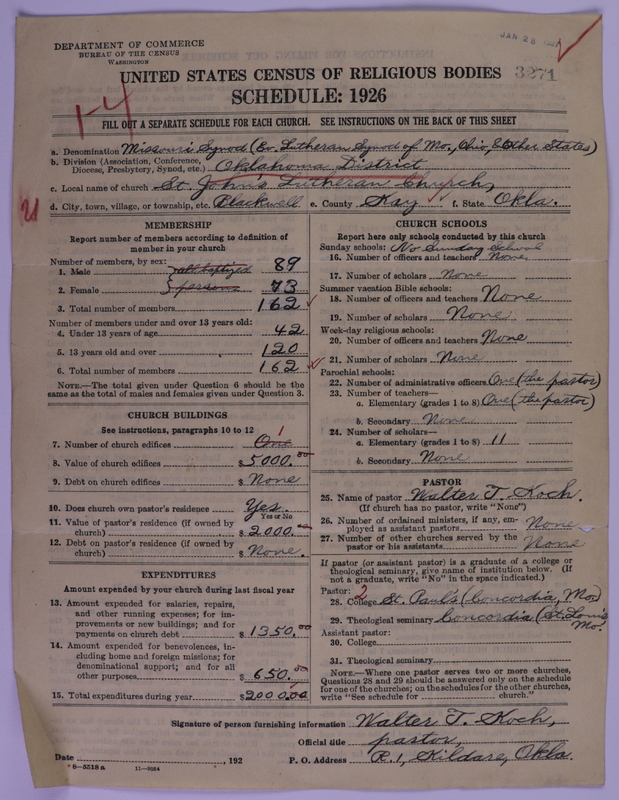 JAN 28
DEPARTMENT OF COMMERCE
BUREAU OF THE CENSUS
WASHINGTON
UNITED STATES CENSUS OF RELIGIOUS BODIES
3271
SCHEDULE: 1926
1-4
FILL OUT A SEPARATE SCHEDULE FOR EACH CHURCH. SEE INSTRUCTIONS ON THE BACK OF THIS SHEET
a. Denomination Missouri Synod (Ev. Lutheran Synod of Mo., Ohio, & Other States)
b. Division (Association, Conference, Diocese, Presbytery, Synod, etc.) Oklahoma District
c. Local name of church St. John's Lutheran Church,
d. City, town, village, or township, etc. Blackwell e. County Kay f. State Okla.
MEMBERSHIP
Report number of members according to definition of
member in your church
Number of members, by sex:
1. Male all baptized 89
2. Female persons 73
3. Total number of members 162
Number of members under and over 13 years old:
4. Under 13 years of age 42
5. 13 years old and over 120
6. Total number of members 162
NOTE.—The total given under Question 6 should be the
same as the total of males and females given under Question 3.
CHURCH BUILDINGS
See instructions, paragraphs 10 to 12
7. Number of church edifices One 1
8. Value of church edifices $5000.00
9. Debt on church edifices $ None
10. Does church own pastor's residence Yes.
Yes or No
11. Value of pastor's residence (if owned by
church) $2000.00
12. Debt on pastor's residence (if owned by
church) $ None.
EXPENDITURES
Amount expended by your church during last fiscal year
13. Amount expended for salaries, repairs,
and other running expenses; for im-
provements or new buildings; and for
payments on church debt $1350.00
14. Amount expended for benevolences, in-
cluding home and foreign missions; for
denominational support; and for all
other purposes $650.00
15. Total expenditures during year $2000.00
CHURCH SCHOOLS
Report here only schools conducted by this church
Sunday schools: No Sunday School
16. Number of officers and teachers None
17. Number of scholars None
Summer vacation Bible schools:
18. Number of officers and teachers None
19. Number of scholars None
Week-day religious schools:
20. Number of officers and teachers None
21. Number of scholars None
Parochial schools:
22. Number of administrative officers One (the pastor)
23. Number of teachers—
a. Elementary (grades 1 to 8) One (the pastor)
b. Secondary None
24. Number of scholars—
a. Elementary (grades 1 to 8) 11
b. Secondary None
PASTOR
25. Name of pastor Walter T. Koch.
(If church has no pastor, write "None")
26. Number of ordained ministers, if any, em-
ployed as assistant pastors None
27. Number of other churches served by the
pastor or his assistants None
If pastor (or assistant pastor) is a graduate of a college or
theological seminary, give name of institution below. (If
not a graduate, write "No" in the space indicated.)
Pastor: 2
28. College St. Paul's (Concordia, Mo.)
29. Theological seminary Concordia (St. Louis Mo.
Assistant pastor:
30. College
31. Theological seminary
NOTE.—Where one pastor serves two or more churches,
Questions 28 and 29 should be answered only on the schedule
for one of the churches; on the schedules for the other churches,
write "See schedule for ______ church."
Signature of person furnishing information Walter T. Koch,
Official title pastor,
Date ______, 192
P. O. Address R. 1, Kildare, Okla.
8-5518 a
11-9054